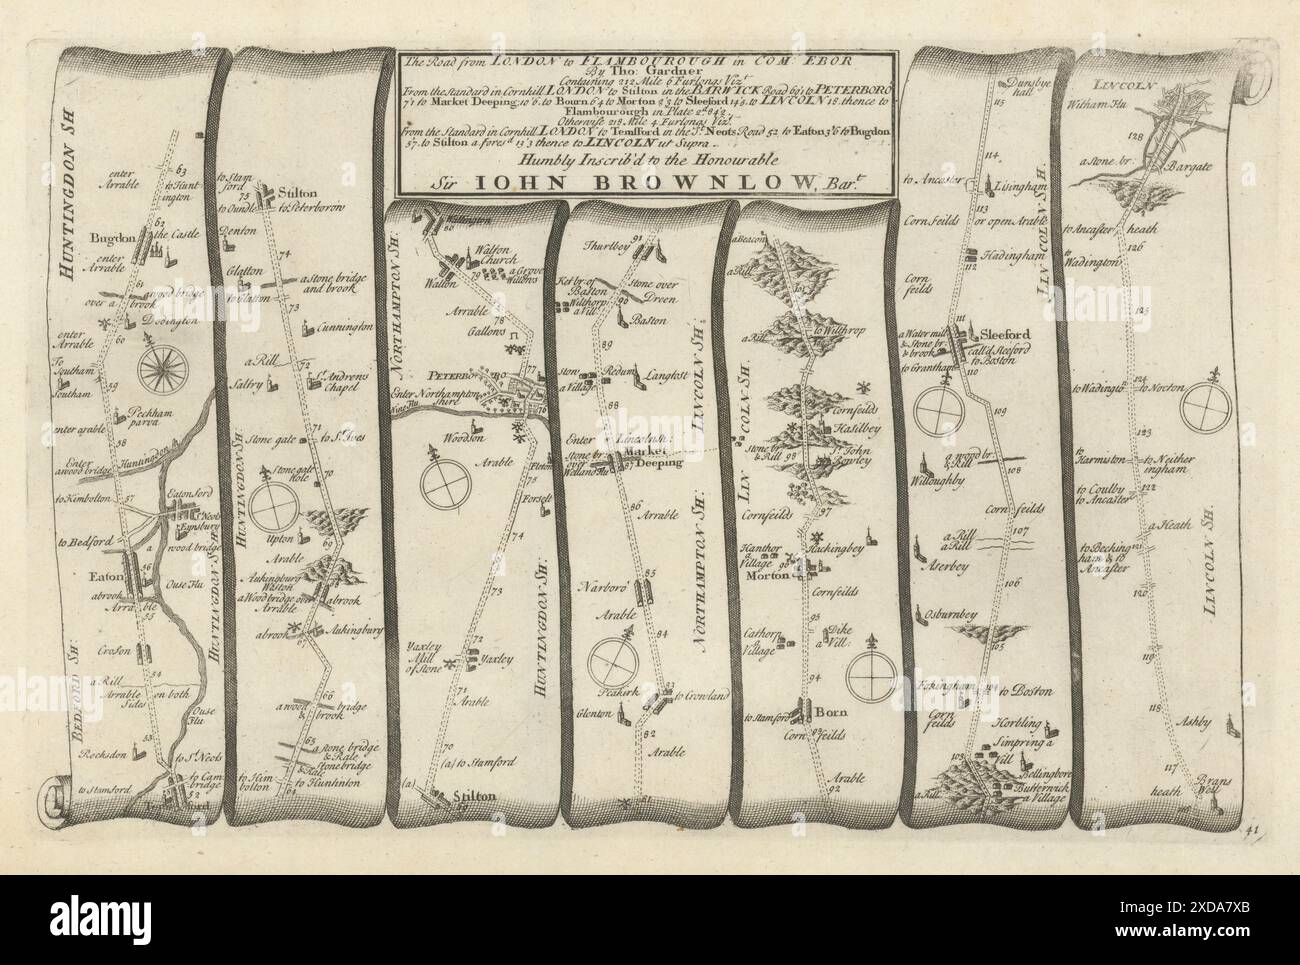 The Road from LONDON to FLAMBOUROUGH in COM: EBOR
By Tho: Gardner
Containing 212 Mile 6 Furlongs Vizt
From the Standard in Cornhill LONDON to Stilton in the BARWICK Road 69'2 to PETERBORO
7'1 to Market Deeping 10'6 to Bourn 6'4 to Morton 2'3 to Sleeford 14'8 to LINCOLN 18. thence to
Flambourough in Plate 2d 84'2.
Otherwise 218 Mile 4 Furlongs Vizt
From the Standard in Cornhill LONDON to Temsford in the St. Neots Road 52 to Eaton 3'6 to Bugdon
5'7 to Stilton aforesd 13'3 thence to LINCOLN ut Supra
Humbly Inscrib'd to the Honourable
Sir IOHN BROWNLOW, Bart
HUNTINGDON SH
enter Arrable
63
to Hunt-
ington
62
Bugdon
the Castle
enter
Arrable
61
a wood bridge
over a brook
Dodington
enter
Arrable
60
To
Southam
Southam
59
Peckham
parva
enter arable
58
Enter
a wood bridge
Huntingdon
to Kimbolton
57
Eatonford
St Neots
Eynsbury
a
wood bridge
to Bedford
Eaton
56
Ouse Flu
a brook
Arrable
55
Croson
HUNTINGDON SH
54
a Rill
Arrable on both
Sides
BEDFORD SH:
Ouse
Flu
53
Rocksdon
to St Neots
to Cam
bridge
52
to Stamford
Temsford
to Stam
ford
75
Stilton
to Oundle
to Peterborow
Denton
74
Glatton
a stone bridge
and brook
to Glatton
73
Cunnington
a Rill
72
Saltry
St Andrews
Chapel
71
Stone gate
to St Ives
HUNTINGDON SH:
Stone gate
Hole
70
Upton
69
Arable
Aukingbury
Weston
a Wood bridge over
Arrable
a brook
a brook
67
Aukingbury
66
a wood bridge
brook
65
a stone bridge
& Rale
Stone bridge
& Rale
to Kim
bolton
to Huntinton
64
NORTHAMPTON SH:
Wallington
80
Walton
Walson
Church
79
a Grove
Willows
Arrable
78
Gallows
77
PETERBORO
Enter Northampton
shire
76
Nine Flu
Woodson
Arable
Fleton
75
Forselt
74
73
HUNTINGDON SH:
72
Yaxley
Mill
of Stone
Yaxley
71
Arable
70
(a) to Stamford
(a)
Stilton
69
Thurlbey
91
Ket br. of
Baston
Stone over
Dreen
Wilthorp
a Vill:
90
Baston
89
Stow
a Village
Redum
Langtost
LINCOLN SH:
88
Enter
Lincoln sh:
Stone br
over
Welland Flu
Market
Deeping
87
86
Arrable
NORTHAMPTON SH:
85
Narboro'
Arable
84
Peakirk
83
to Crowland
Glenton
82
Arable
81
a Beacon
a Rill
101
to Wilthrop
a Rill
LINCOLN SH:
Cornfeilds
Hasilbey
Stone br
& Rill
98
St John
Bowley
97
Cornfeilds
Hackingbey
Hanthor
a
Village
96
Morton
Cornfeilds
95
Cathorp
a
Village
Dike
a Vill:
94
to Stamford
Born
93
Corn feilds
Arable
92
Dunsbye
hall
115
114
to Ancaster
Lisingham
113
Corn Feilds
or open Arable
Hadingham
112
Corn
feilds
LINCOLN SH
111
a Water mill
& Stone br
& brook
Sleeford
call'd Sleeford
to Boston
to Grantham
110
109
a wood br
& Rill
108
Willoughby
Corn feilds
107
a Rill
a Rill
Aserbey
106
Osburnbey
105
Fckingham
104
to Boston
Corn
feilds
Horbling
Simpring a
Vill
103
Bellingboro
Butterwick
a Village
a Rill
LINCOLN
Witham Flu
128
a stone br
Bargate
to Ancaster
heath
126
to
Wadington
125
124
to Wadingtō
to Nocton
123
to
Harmston
to Neither
ingham
122
to Coulby
to Ancaster
a Heath
121
to Becking
ham & to
Ancaster
120
LINCOLN SH:
119
118
Ashby
117
heath
Brans
Well
116
41
alamy
Image ID: 2XDA7XB
www.alamy.com